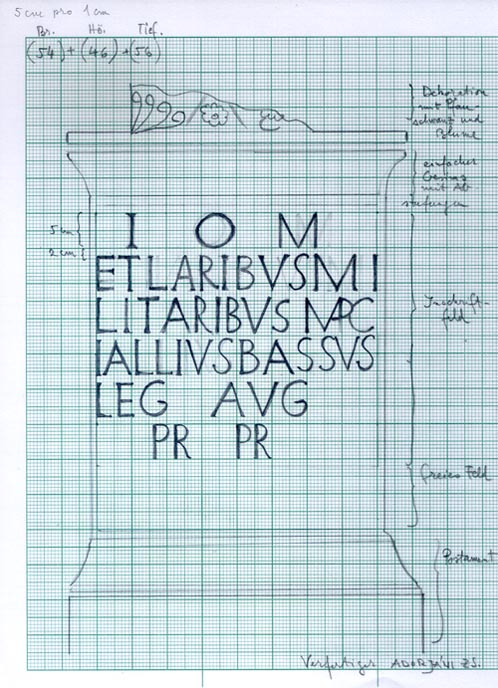 5 cm pro 1 cm
Br. Hö. Tief.
(54) + (46) + (56)
Dekoration
mit Pfau-
schwanz und
Blume
einfacher
mit Ab-
stufungen
5 cm
2 cm
I O M
ET LARIBVS MI
LITARIBVS MPC
IALLIVS BASSVS
LEG AVG
PR PR
Inschrift-
feld
freies Feld
Postament
Verfertiger ADORJÁNI ZS.